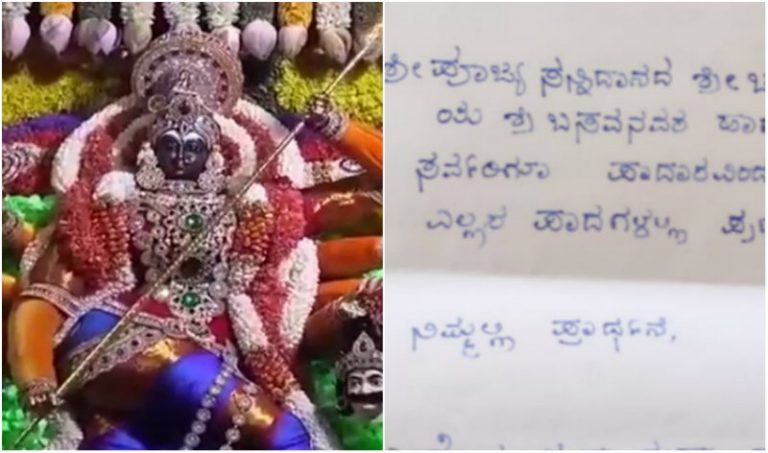 ಶ್ರೀ ಪೂಜ್ಯ ಸನ್ನಿದಾನದ ಶ್ರೀ
ಯ ಶ್ರೀ ಬಸವನವರ ಪಾ
ಸರ್ವರಿಗೂ ಪಾದಾರವಿಂದ
ಎಲ್ಲರ ಪಾದಗಳಲ್ಲಿ
ನಿಮ್ಮಲ್ಲಿ ಪ್ರಾರ್ಥನೆ,